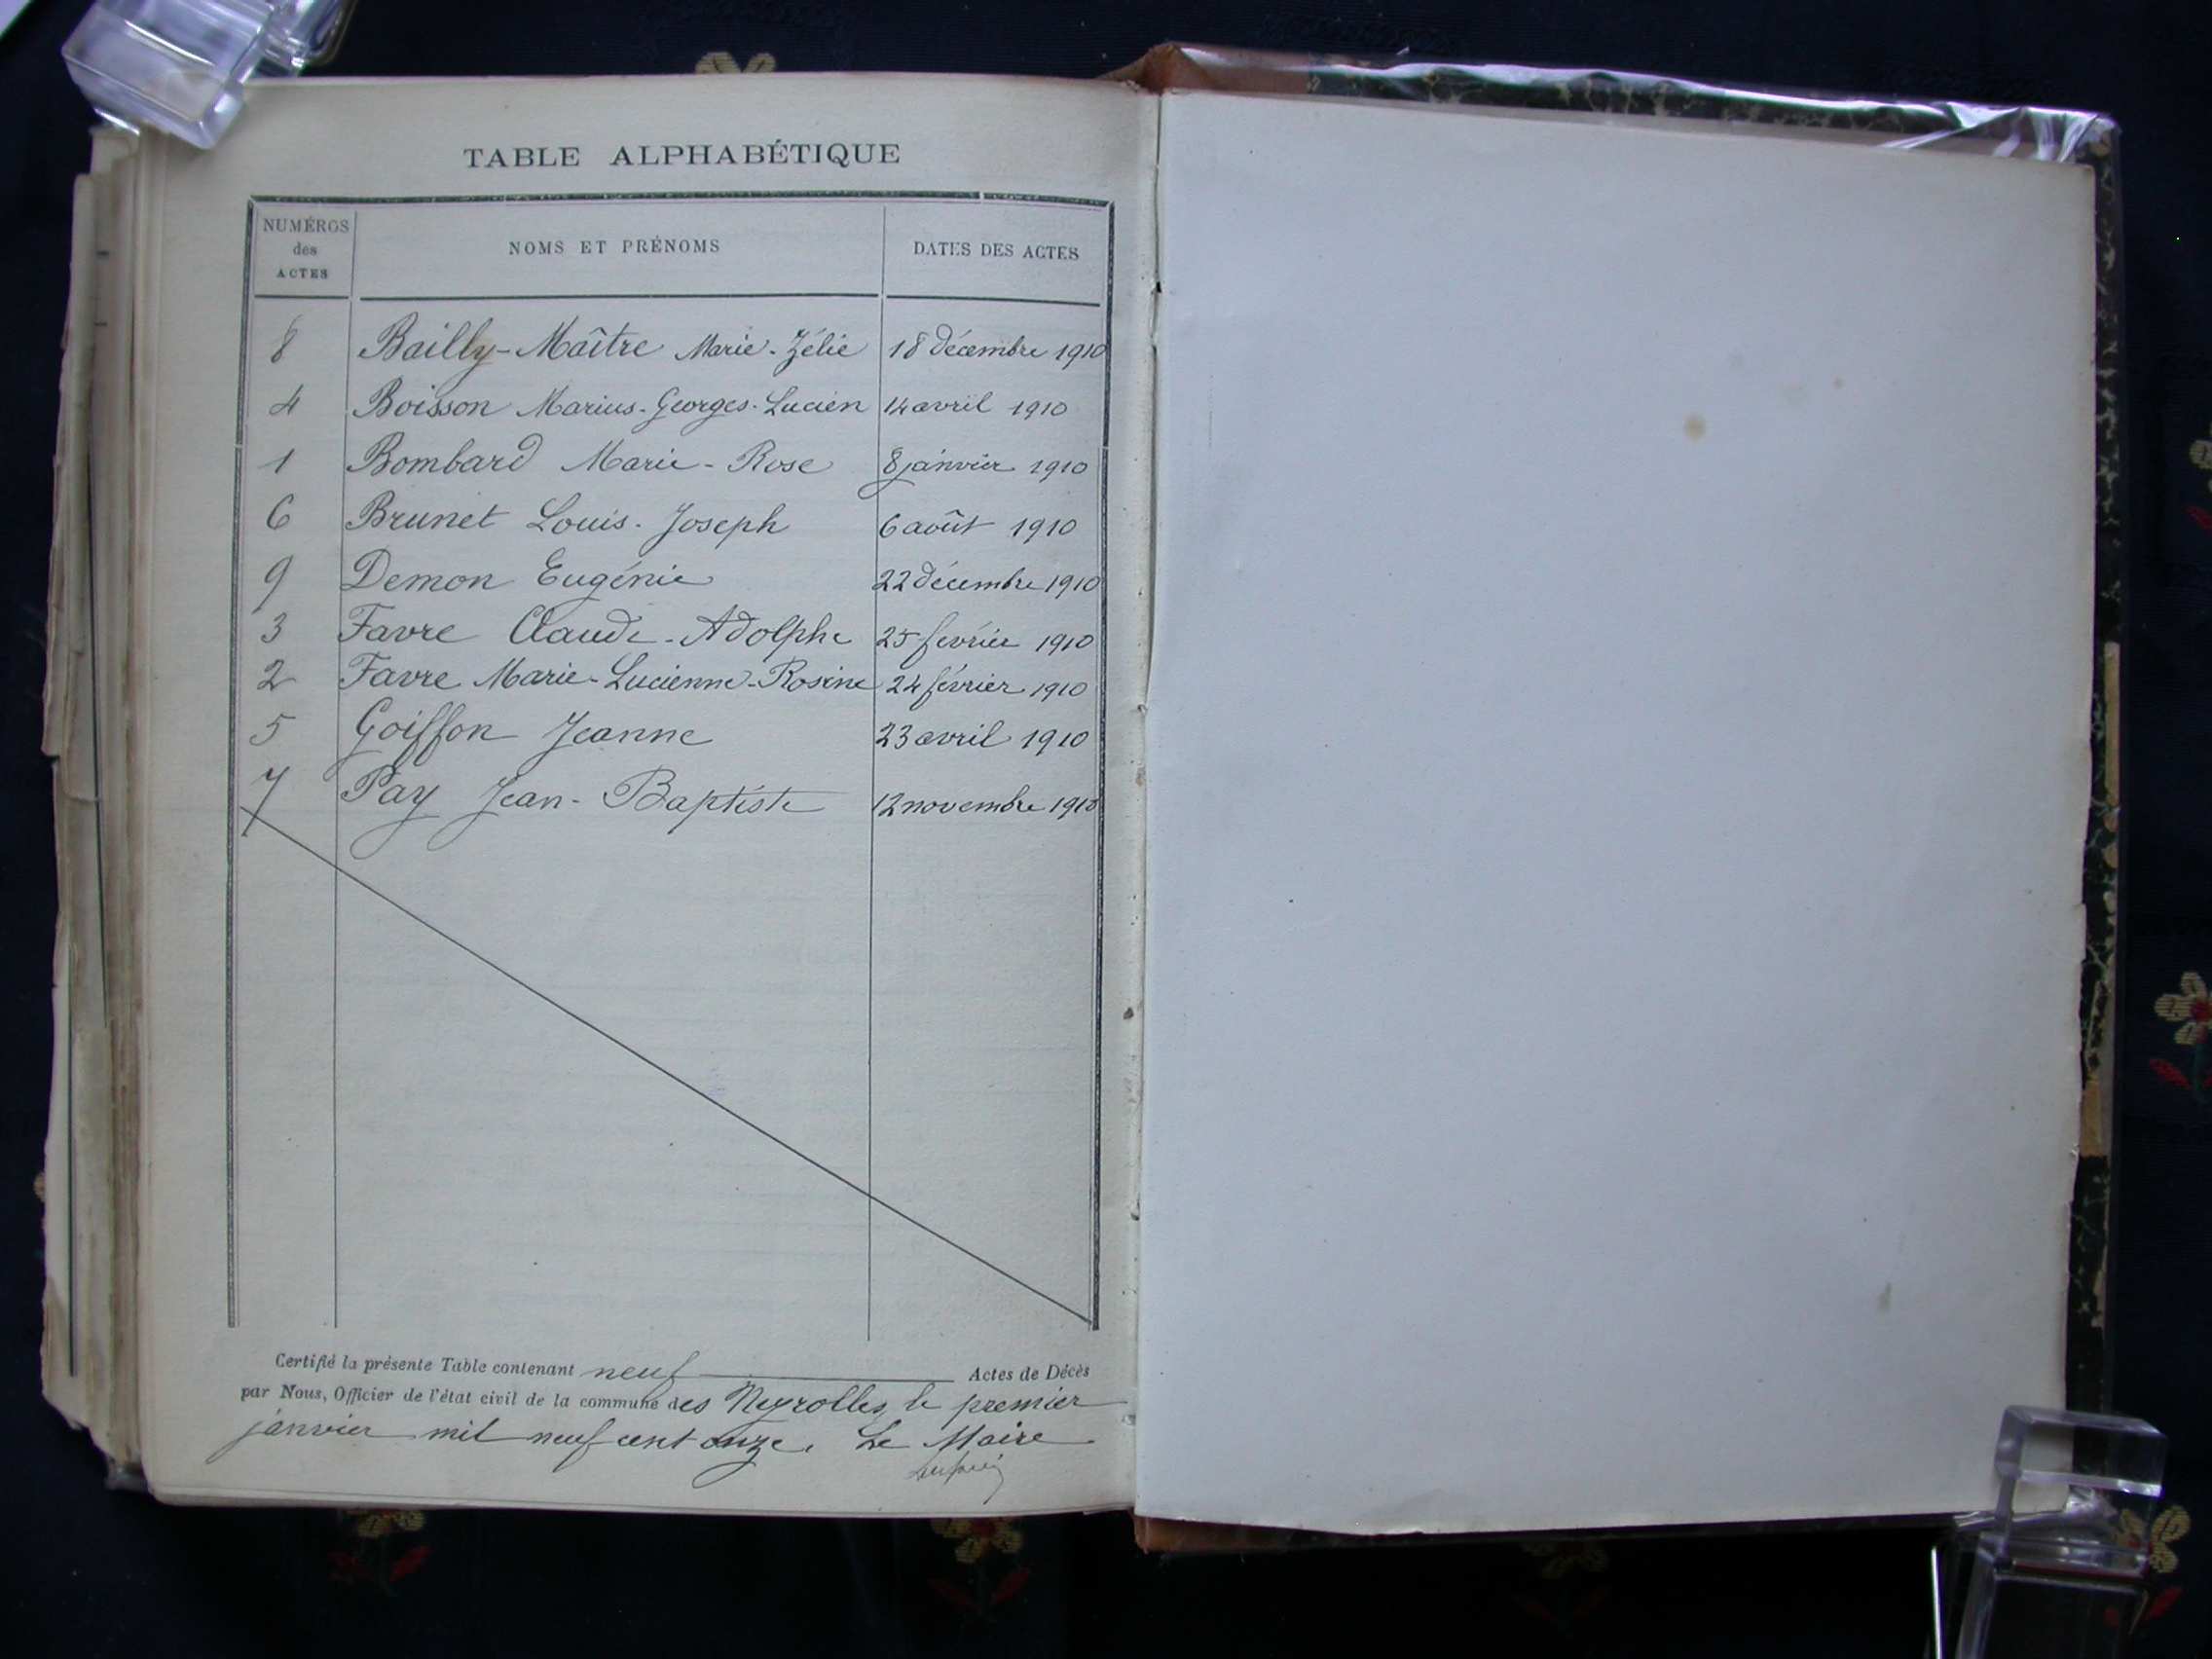 TABLE ALPHABÉTIQUE
NUMÉROS des ACTES NOMS ET PRÉNOMS DATES DES ACTES
8 Bailly-Maître Marie-Zélie 18 décembre 1910
4 Boisson Marius-Georges-Lucien 14 avril 1910
1 Bombard Marie-Rose 8 janvier 1910
6 Brunet Louis-Joseph 6 août 1910
9 Demon Eugénie 22 décembre 1910
3 Favre Claude-Adolphe 25 février 1910
2 Favre Marie-Lucienne-Rosine 24 février 1910
5 Goiffon Jeanne 23 avril 1910
7 Pay Jean-Baptiste 12 novembre 1910
Certifié la présente Table contenant neuf Actes de Décès
par Nous, Officier de l'état civil de la commune des Neyrolles, le premier
janvier mil neuf cent onze. Le Maire